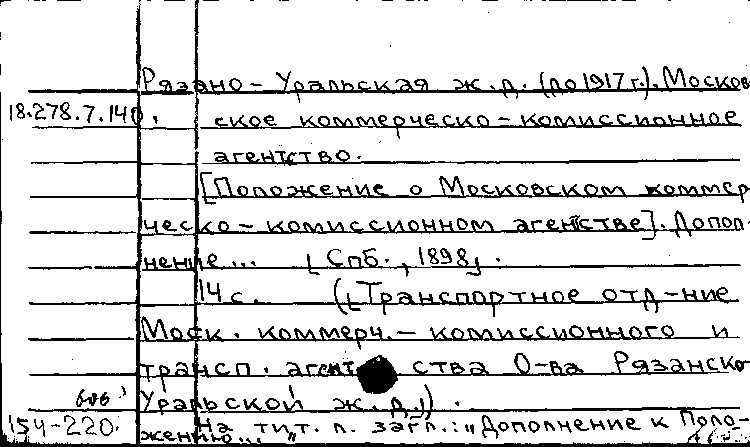 Рязано-Уральская ж.д. (до 1917 г.). Москов
18.278.7.140. ское коммерческо-комиссионное
агентство.
[Положение о Московском коммер
ческо-комиссионном агентстве]. Допол-
нение... [Спб., 1898].
14 с. ([Транспортное отд-ние
Моск. коммерч.-комиссионного и
трансп. агентства О-ва Рязанско
Уральской ж.д.]).
154-220. На тит. л. загл.: "Дополнение к Поло-
жению..."